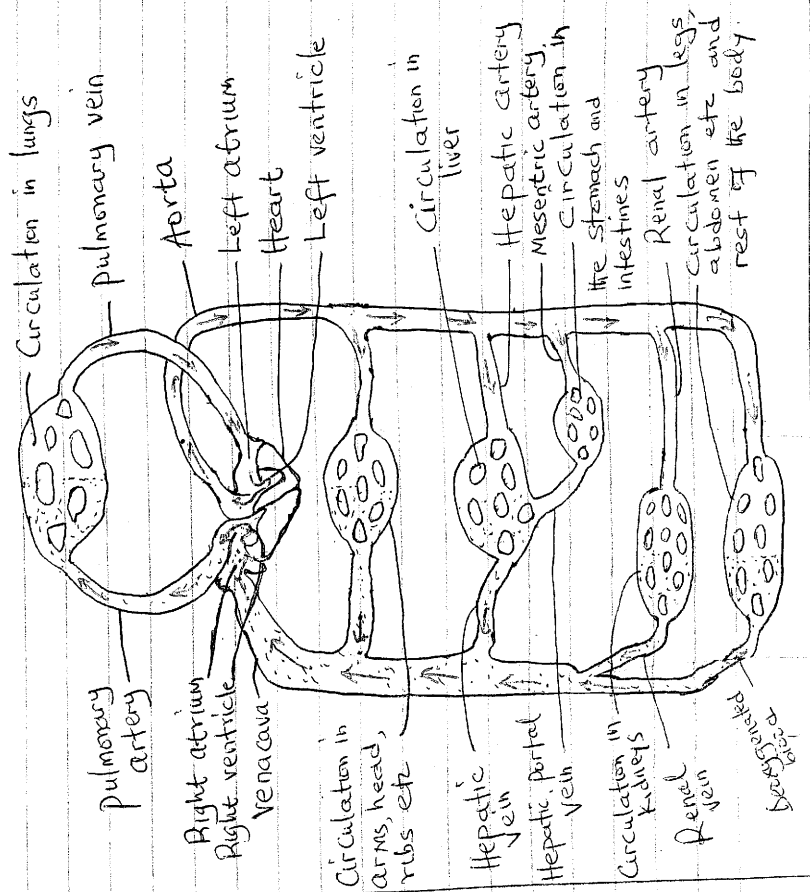 Circulation in lungs
pulmonary vein
Aorta
Left atrium
Heart
Left ventricle
Circulation in
liver
Hepatic artery
Mesentric artery
Circulation in
the stomach and
intestines
Renal artery
Circulation in legs,
abdomen etc and
rest of the body.
pulmonary
artery
Right atrium
Right ventricle
Venacava
Circulation in
arms, head,
ribs etc
Hepatic
vein
Hepatic portal
vein
Circulation in
kidneys
Renal
vein
blood